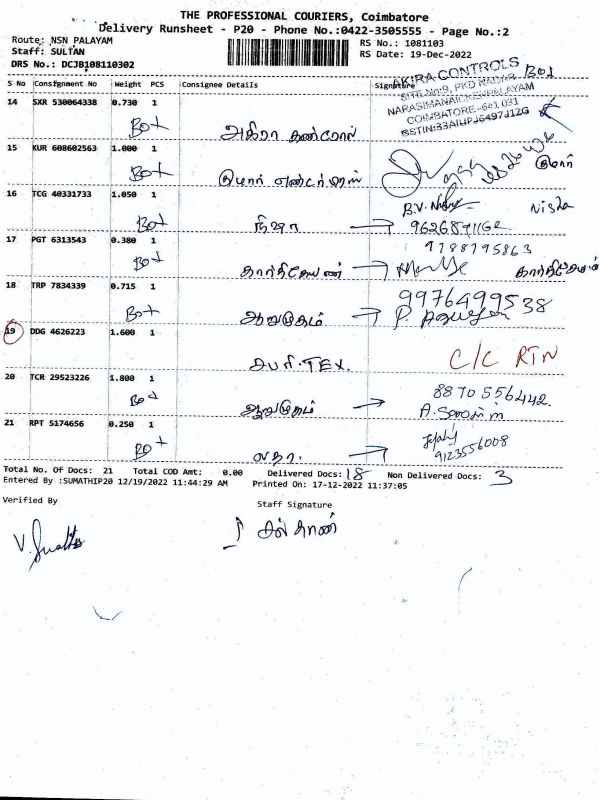 THE PROFESSIONAL COURIERS, Coimbatore
Delivery Runsheet - P20 - Phone No.:0422-3505555 - Page No.:2
Route: NSN PALAYAM RS No.: 1081103
Staff: SULTAN RS Date: 19-Dec-2022
DRS No.: DCJB108110302
S No Consignment No Weight PCS Consignee Details Signature
AKIRA CONTROLS Box
SITE No:9, PKD NAGAR
NARASIMANAICKENPALAYAM
COIMBATORE-641 031
GSTIN:33AIUPJ6497J1ZG
14 SXR 530064338 0.730 1
Box அகிரா கண்ட்ரோல்
15 KUR 608602563 1.000 1
Box குமார் எண்டர்பிரைஸ் குமார்
16 TCG 40331733 1.050 1 B.V. Nisha
Box நிஷா → 9626871162 Nisha
17 PGT 6313543 0.380 1 9788795863
Box கார்த்திகேயன் → கார்த்திகேயன்
18 TRP 7834339 0.715 1 9976499538
Box ஆறுமுகம் →
19 DDG 4626223 1.600 1 C/C RTN
சபரி.TEX.
20 TCR 29523226 1.800 1 8870556442
Box ஆறுமுகம் →
21 RPT 5174656 0.250 1
Box லதா. → 9123556008
Total No. Of Docs: 21 Total COD Amt: 0.00 Delivered Docs: 18 Non Delivered Docs: 3
Entered By :SUMATHIP20 12/19/2022 11:44:29 AM Printed On: 17-12-2022 11:37:05
Verified By Staff Signature